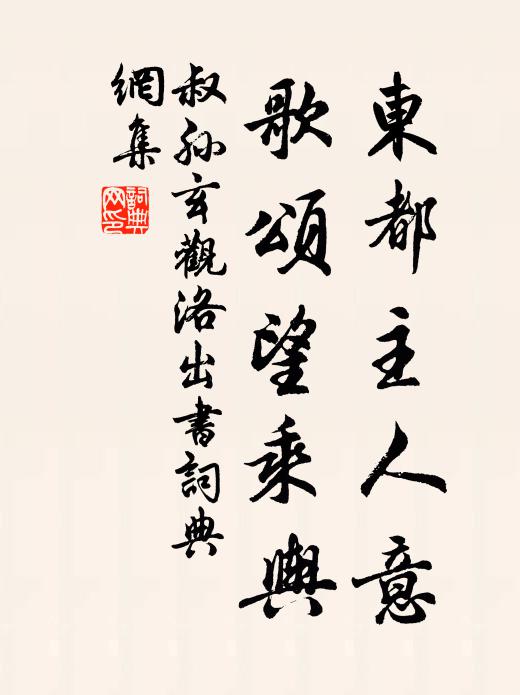 東都主人意
歌頌望乘輿
叔孫玄觀洛出書詞典
網集
詞典網印